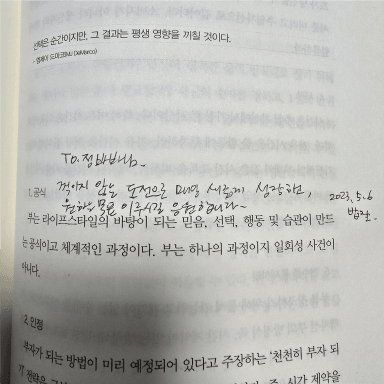 선택은 순간이지만, 그 결과는 평생 영향을 끼칠 것이다.
- 엠제이 드마코(MJ DeMarco)
To. 정바바님~
1. 공식
꺾이지 않는 도전으로 매일 새롭게 성장하고,
원하는 목표 이루시길 응원합니다~
2023. 5. 6
부는 라이프스타일의 바탕이 되는 믿음, 선택, 행동 및 습관이 만드
는 공식이고 체계적인 과정이다. 부는 하나의 과정이지 일회성 사건이
아니다.
2. 인정
부자가 되는 방법이 미리 예정되어 있다고 주장하는 '천천히 부자 되
기' 전략은
시가 제약을